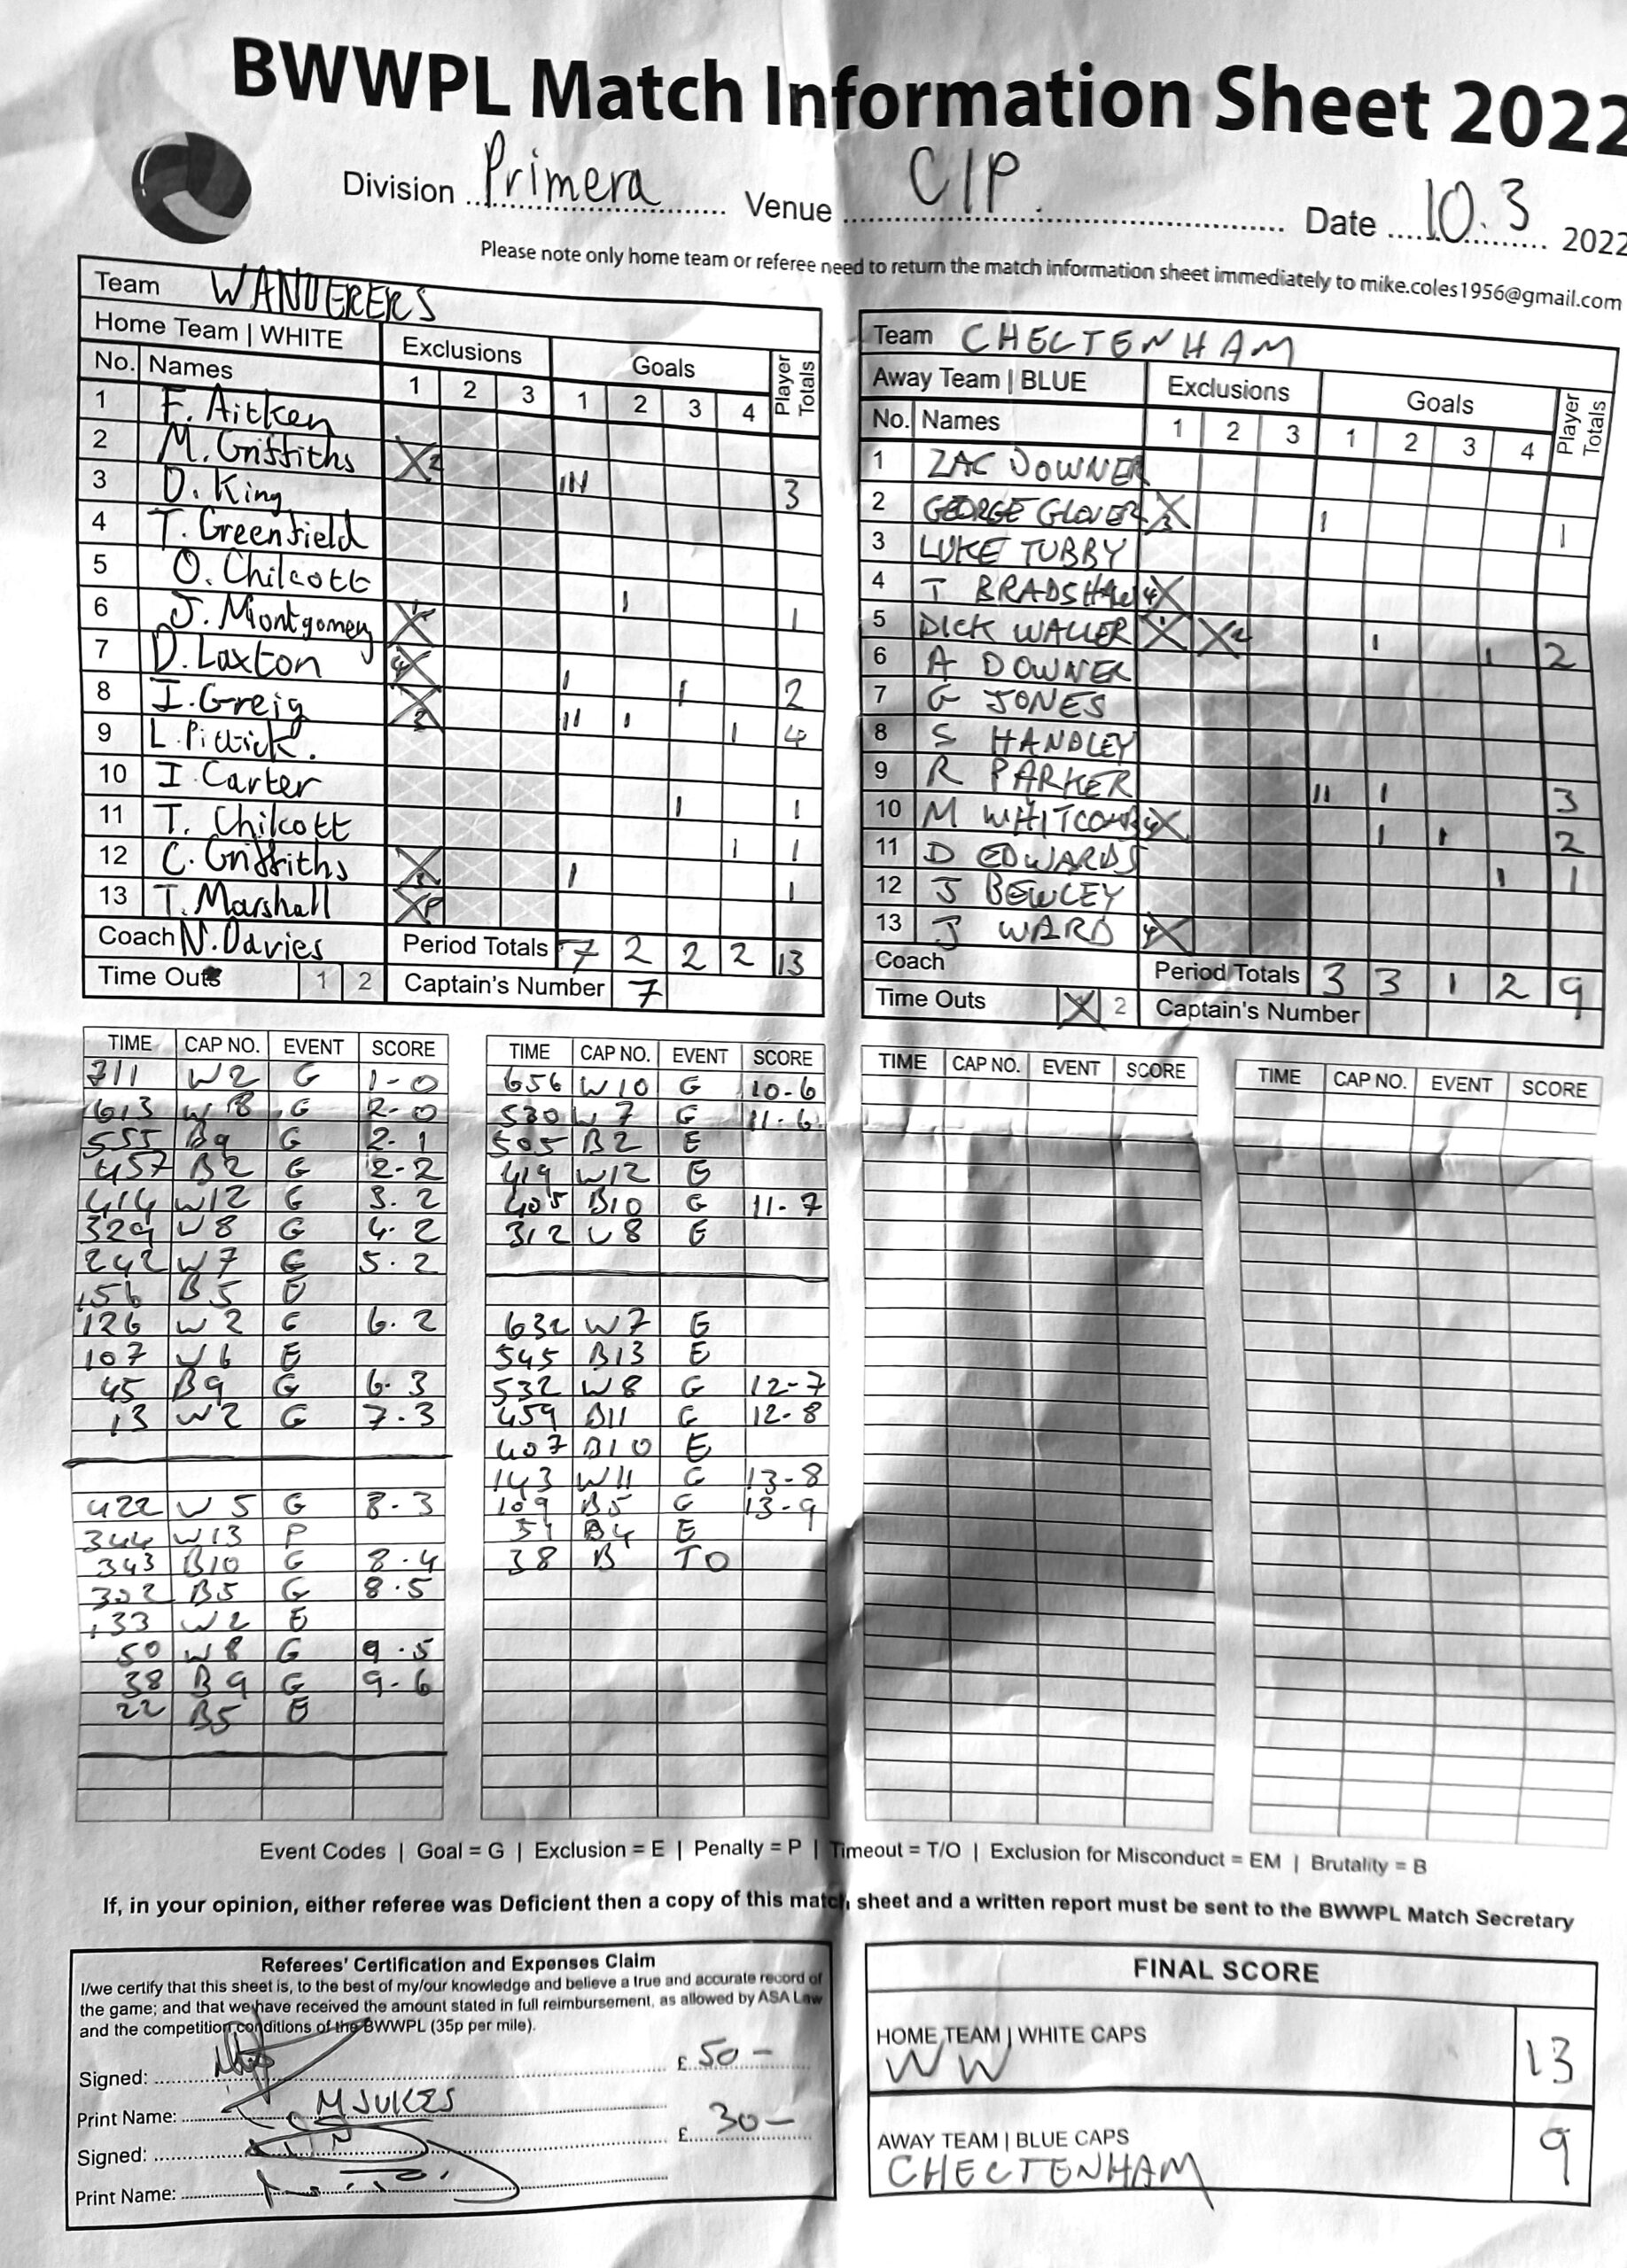 BWWPL Match Information Sheet 2022
Division Primera Venue CIP. Date 10.3 2022
Please note only home team or referee need to return the match information sheet immediately to mike.coles1956@gmail.com
Team WANDERERS
Home Team | WHITE Exclusions Goals Player Totals
No. Names 1 2 3 1 2 3 4
1 F. Aitken
2 M. Griffiths X2 III 3
3 D. King
4 T. Greenfield
5 O. Chilcott I 1
6 J. Montgomey X1
7 D. Laxton X4 I I 2
8 I. Greig X3 II I I 4
9 L. Pittick.
10 I. Carter I 1
11 T. Chilcott I 1
12 C. Griffiths X3 I 1
13 T. Marshall XP
Coach N. Davies Period Totals 7 2 2 2 13
Time Outs 1 2 Captain's Number 7
Team CHECTENHAM
Away Team | BLUE Exclusions Goals Player Totals
No. Names 1 2 3 1 2 3 4
1 ZAC DOWNER
2 GEORGE GLOVER X3 I 1
3 LUKE TUBBY
4 T BRADSHAW 4X
5 DICK WALLER X1 X2 I I 2
6 A DOWNER
7 G JONES
8 S HANDLEY
9 R PARKER II I 3
10 M WHITCOMB 4X I I 2
11 D EDWARDS I 1
12 J BEWLEY
13 J WARD 4X
Coach Period Totals 3 3 1 2 9
Time Outs X 2 Captain's Number
TIME CAP NO. EVENT SCORE
711 W2 G 1-0
613 W8 G 2-0
555 B9 G 2.1
457 B2 G 2-2
414 W12 G 3.2
329 W8 G 4.2
242 W7 G 5.2
156 B5 E
126 W2 G 6.2
107 W6 E
45 B9 G 6.3
13 W2 G 7.3
422 W5 G 8.3
344 W13 P
343 B10 G 8.4
302 B5 G 8.5
133 W2 E
50 W8 G 9.5
38 B9 G 9-6
22 B5 E
TIME CAP NO. EVENT SCORE
656 W10 G 10-6
530 W7 G 11-6
505 B2 E
419 W12 E
405 B10 G 11-7
312 W8 E
632 W7 E
545 B13 E
532 W8 G 12-7
459 B11 G 12-8
407 B10 E
143 W11 G 13-8
109 B5 G 13-9
51 B4 E
38 B TO
TIME CAP NO. EVENT SCORE
TIME CAP NO. EVENT SCORE
Event Codes | Goal = G | Exclusion = E | Penalty = P | Timeout = T/O | Exclusion for Misconduct = EM | Brutality = B
If, in your opinion, either referee was Deficient then a copy of this match sheet and a written report must be sent to the BWWPL Match Secretary
Referees' Certification and Expenses Claim
I/we certify that this sheet is, to the best of my/our knowledge and believe a true and accurate record of
the game; and that we have received the amount stated in full reimbursement, as allowed by ASA Law
and the competition conditions of the BWWPL (35p per mile).
Signed: £ 50 -
Print Name: M JUKES
Signed: £ 30 -
Print Name:
FINAL SCORE
HOME TEAM | WHITE CAPS
WW 13
AWAY TEAM | BLUE CAPS
CHECTENHAM 9